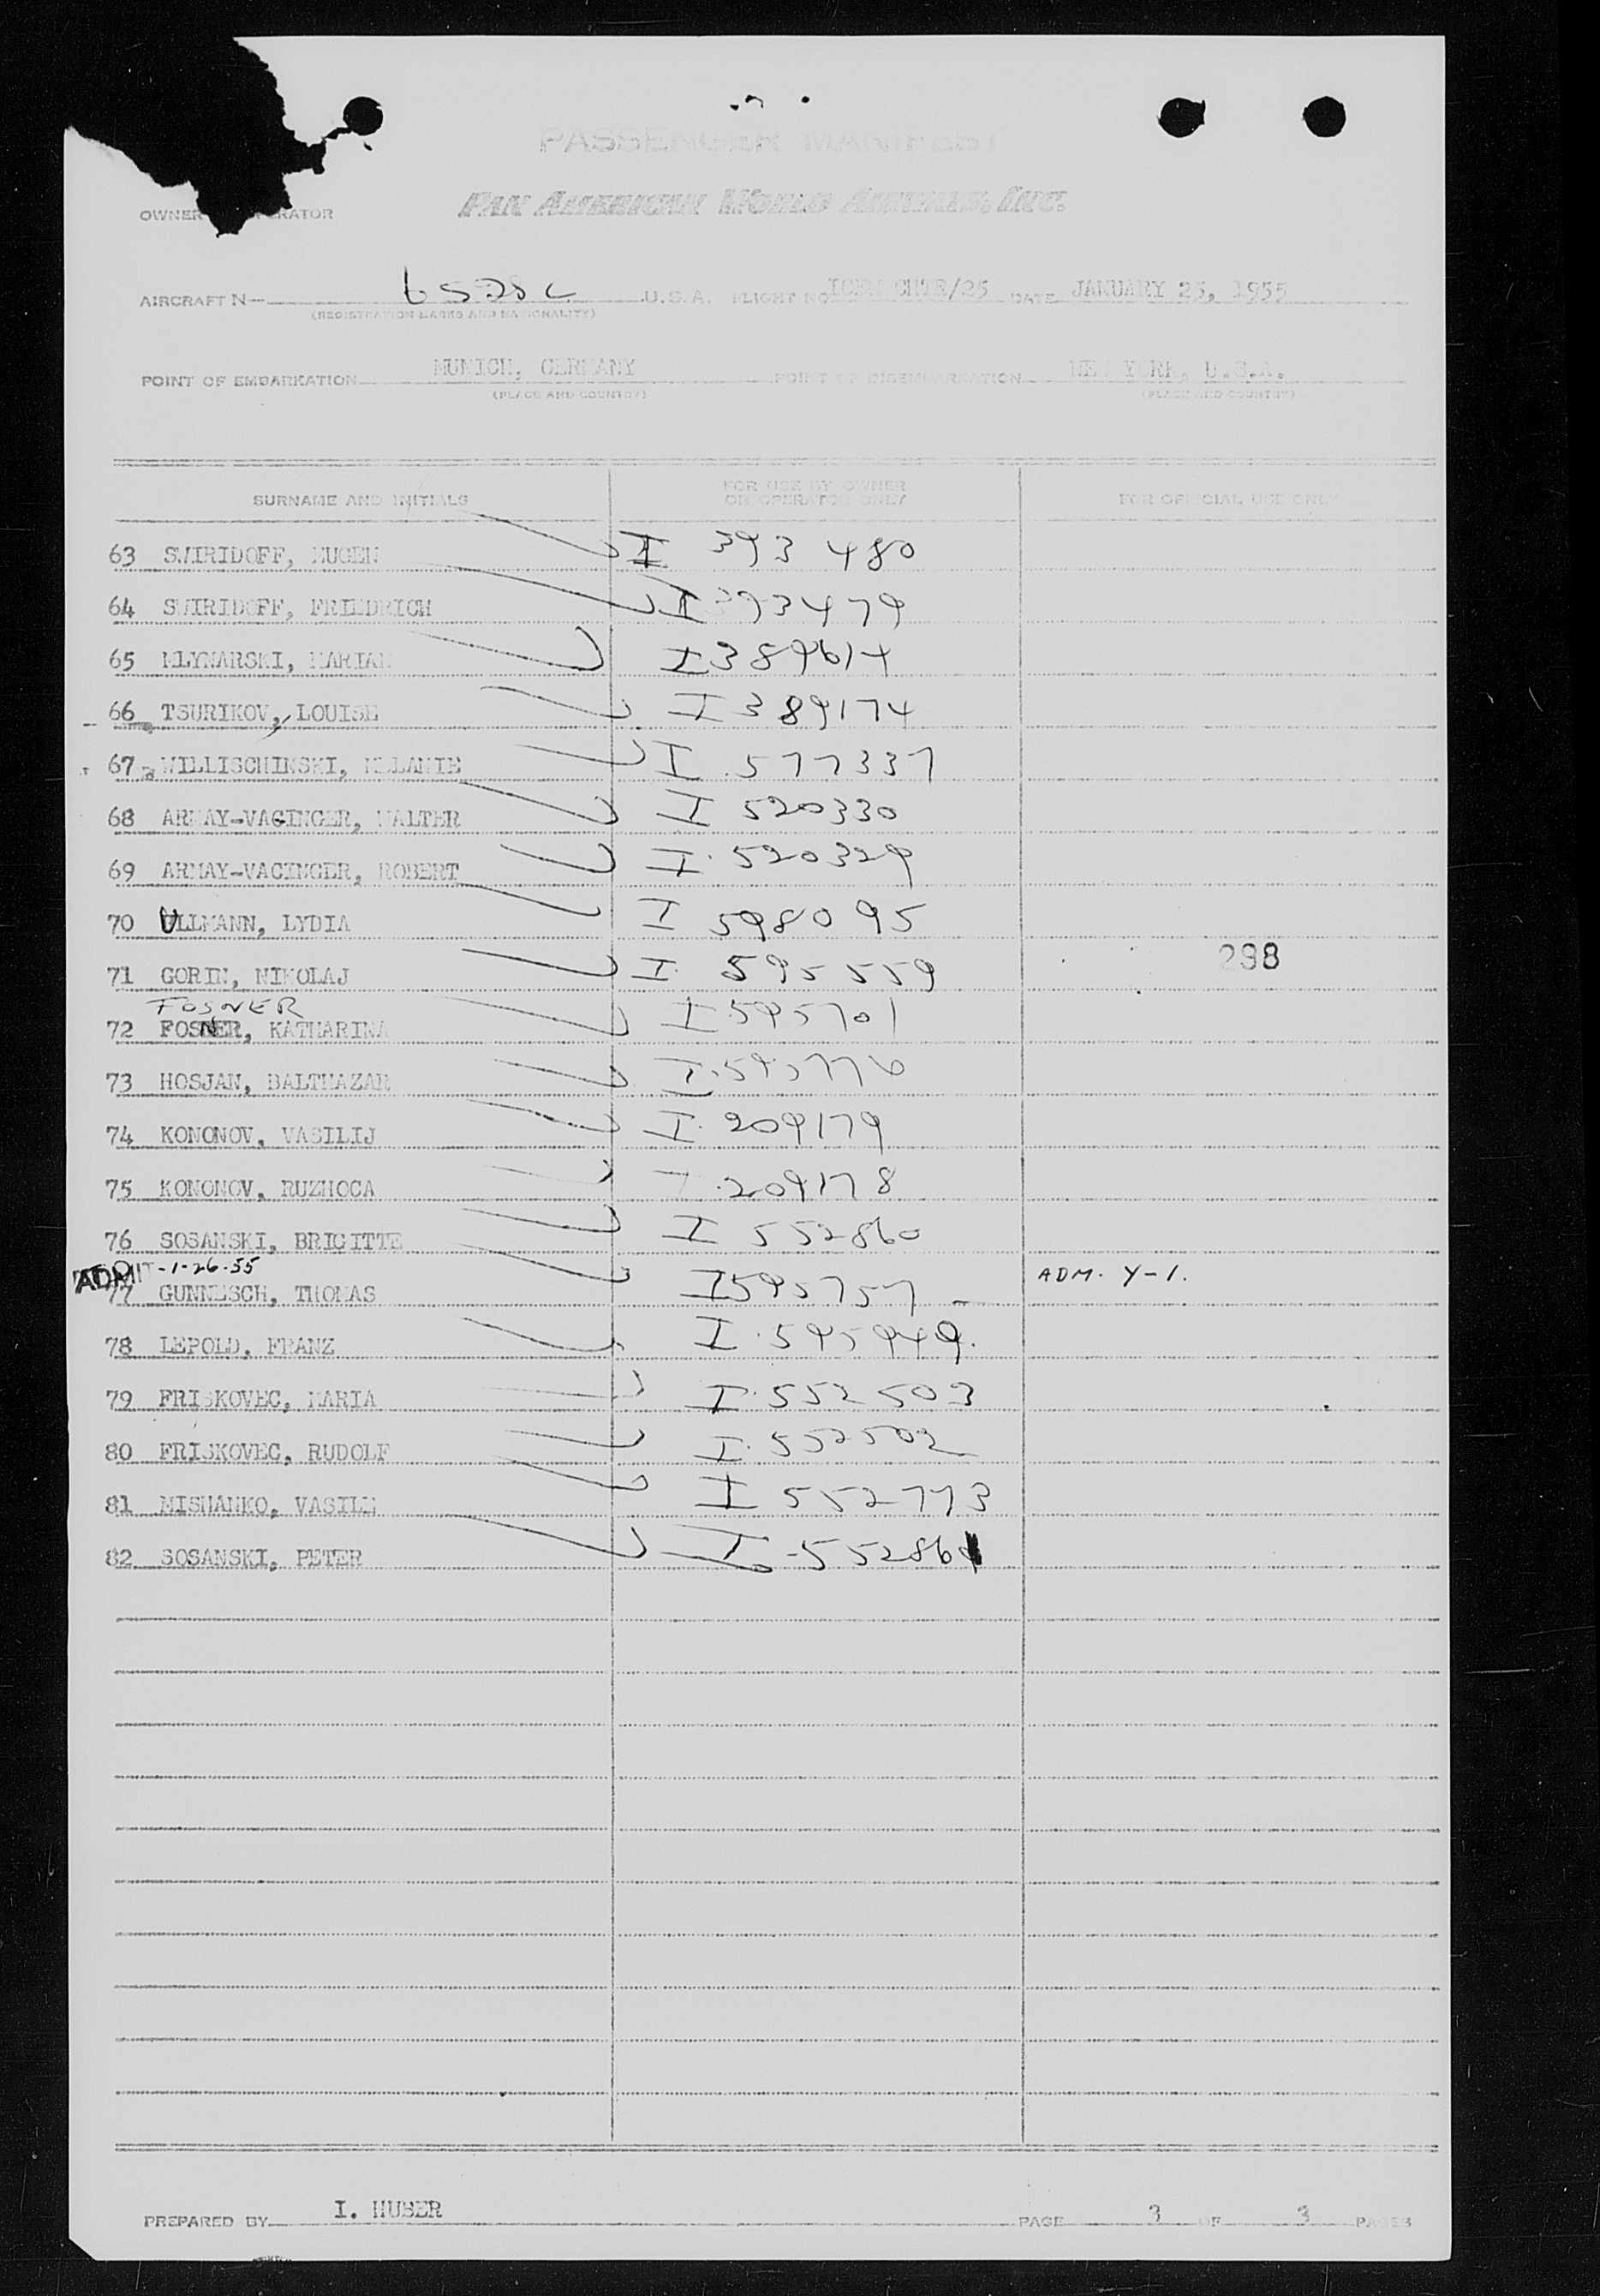 PASSENGER MANIFEST
OWNER OPERATOR PAN AMERICAN WORLD AIRWAYS, INC.
AIRCRAFT N— 6528C U.S.A. FLIGHT NO /25 DATE JANUARY 25, 1955
(REGISTRATION MARKS AND NATIONALITY)
POINT OF EMBARKATION MUNICH, GERMANY POINT OF DISEMBARKATION NEW YORK, U.S.A.
(PLACE AND COUNTRY) (PLACE AND COUNTRY)
SURNAME AND INITIALS FOR USE BY OWNER OR OPERATOR ONLY FOR OFFICIAL USE ONLY
63 SWIRIDOFF, EUGEN I 393 480
64 SWIRIDOFF, FRIEDRICH I 393479
65 MLYNARSKI, MARIAN I 389614
66 TSURIKOV, LOUISE I 389174
67 WILLISCHINSKI, MELANIE I 577337
68 ARMAY-VAGINGER, WALTER I 520330
69 ARMAY-VAGINGER, ROBERT I 520329
70 ULLMANN, LYDIA I 598095
71 GORIN, NIKOLAJ I 595559 298
FOSNER
72 FOSNER, KATHARINA I 595701
73 HOSJAN, BALTHAZAR I 595776
74 KONONOV, VASILIJ I 209179
75 KONONOV, RUZHOCA I 209178
76 SOSANSKI, BRIGITTE I 552860
ADMIT-1-26-55
77 GUNNESCH, THOMAS I 595757 ADM. Y-1.
78 LEPOLD, FRANZ I 595949
79 FRISKOVEC, MARIA I 552503
80 FRISKOVEC, RUDOLF I 552502
81 MISHANKO, VASILE I 552773
82 SOSANSKI, PETER I 552861
PREPARED BY I. HUBER PAGE 3 OF 3 PAGES